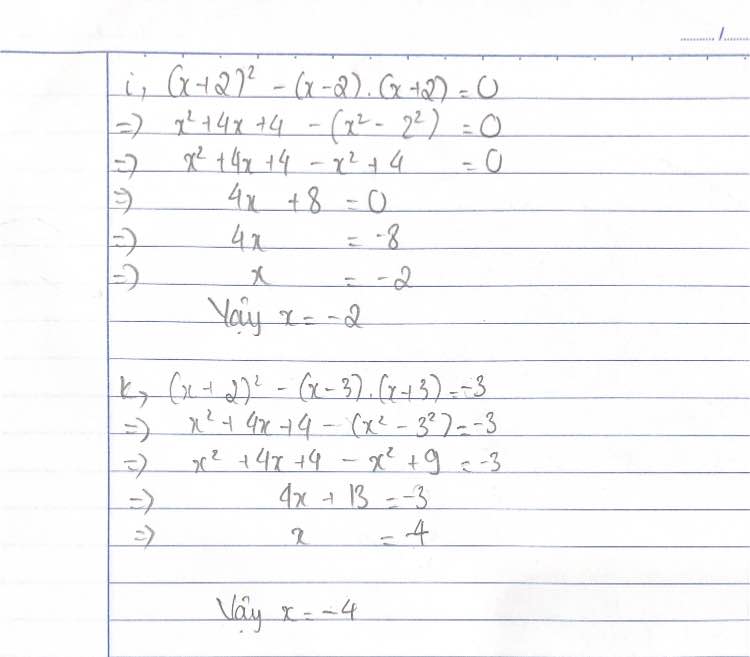 ........./.........
i, (x+2)² - (x-2).(x+2) = 0
=> x² + 4x + 4 - (x² - 2²) = 0
=> x² + 4x + 4 - x² + 4 = 0
=> 4x + 8 = 0
=> 4x = -8
=> x = -2
Vậy x = -2
k, (x + 2)² - (x-3).(x+3) = -3
=> x² + 4x + 4 - (x² - 3²) = -3
=> x² + 4x + 4 - x² + 9 = -3
=> 4x + 13 = -3
=> x = -4
Vậy x = -4